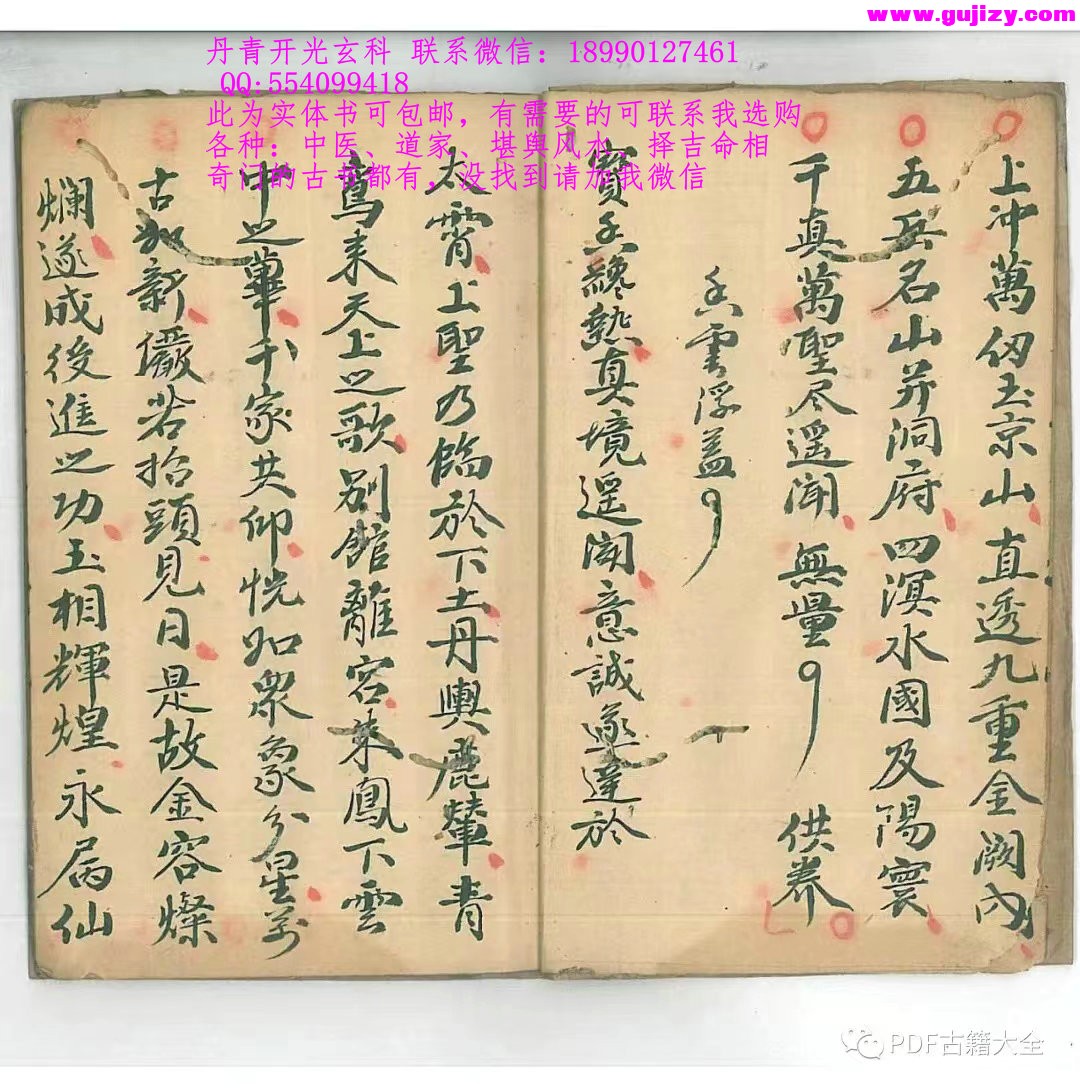 www.gujizy.com
丹青开光玄科 联系微信：18990127461
QQ:554099418
此为实体书可包邮，有需要的可联系我选购
各种：中医、道家、堪舆风水、择吉命相
奇门的古书都有，没找到请加我微信
上冲萬仞玉京山直透九重金阙内
五兵名山并洞府四溟水國及陽寰
千真萬聖尽遥闻 無量 供养
雲浮盖
寳纔熱真境遥闻意誠遂達於
太霄上聖乃臨於下土丹輿麗輦青
鸞来天上之歌别舘離容来鳳下雲
中之華千家共仰恍如衆象分星萬
古如新儼若抬頭見日是故金容燦
爛遂成後進之功玉相輝煌永爲仙
PDF古籍大全